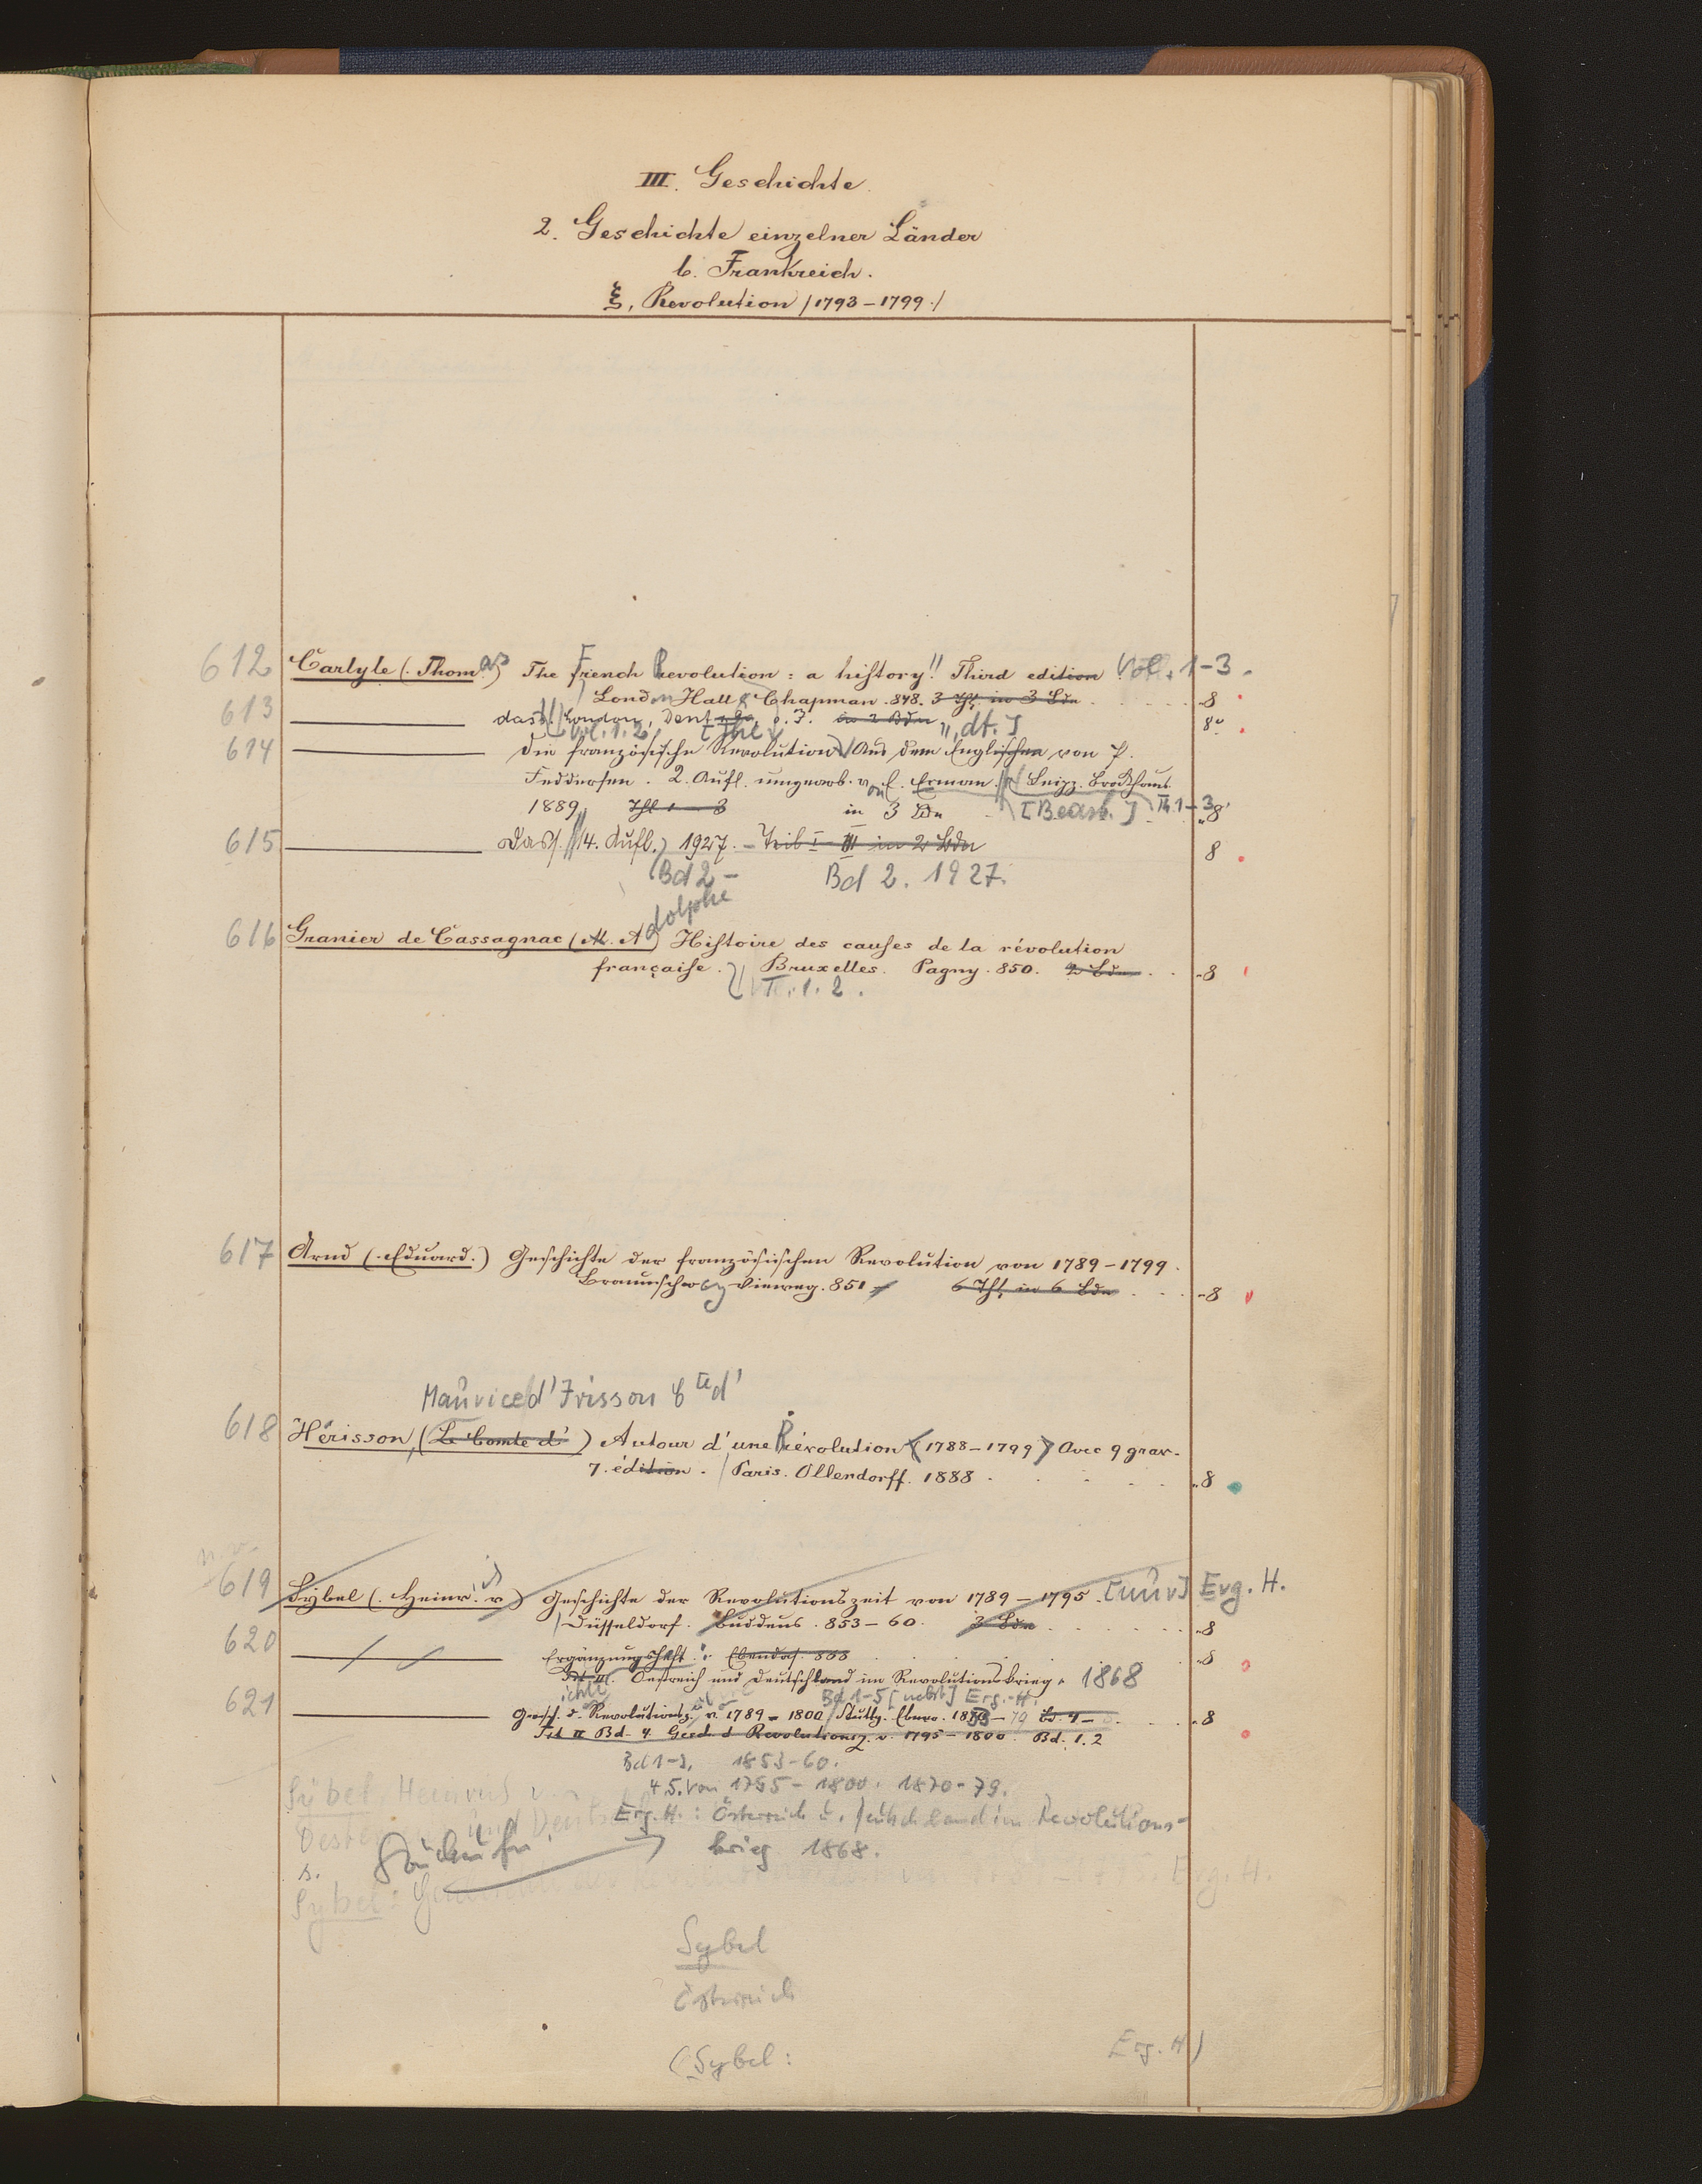 III. Geschichte
2. Geschichte einzelner Länder
b. Frankreich.
ξ, Revolution /1793-1799./
612 Carlyle (. Thomas) The French Revolution: a history!! Third edition Vol. 1-3.
London Hall & Chapman. 848. 3 Thl. in 3 Bdn 8
613 dass. London, Dent o. J. in 2 Bdn 8°
Vol. 1. 2 [The, dt.]
614 Die französische Revolution Aus dem Englischen von P.
Feddersen. 2. Aufl. umgearb. von E. Erman. Leipz. Brockhaus
1889, Thl 1-3 in 3 Bdn [Bearb.] Th. 1-3 8
615 Dass. 4. Aufl. 1927. - Teil I-III in 2 Bdn 8
Bd 2 - Bd 2. 1927.
616 Granier de Cassagnac (M. Adolphe) Histoire des causes de la révolution
française. Bruxelles. Pagny. 850. 2 Bdn 8
T. 1. 2.
617 Arnd (. Eduard.) Geschichte der französischen Revolution von 1789-1799.
Braunschweig Vieweg. 851 6 Thl. in 6 Bdn 8
Maurice d'Irisson
618 Hérisson, (Le Comte d') Autour d'une Révolution (1788-1799) Avec 9 grav.
7. édition. Paris. Ollendorff. 1888 8
619 Sybel (. Heinr. v) Geschichte der Revolutionszeit von 1789-1795. [nur] Erg. H.
Düsseldorf. Buddeus. 853-60. 3 Bdn 8
620 Ergänzungsheft: Ebendas. 868 8
Oestreich und Deutschland im Revolutionskrieg. 1868
Bd 1-5 [nebst] Erg.-H.
621 Gesch. d. Revolutionsz. v. 1789-1800 Stuttg. Ebner. 1853-79 Bd. 4- 8
Tit II Bd. 4 Gesch d Revolutionsz. v. 1795-1800. Bd. 1. 2
Bd 1-3, 1853-60.
4 5. von 1795-1800. 1870-79.
Sybel, Heinrich v.
Erg. H.: Österreich u. Deutschland im Revolutions-
s. krieg 1868.
Sybel: Erg. H.
Sybel
Österreich
(Sybel: Erg. H.)